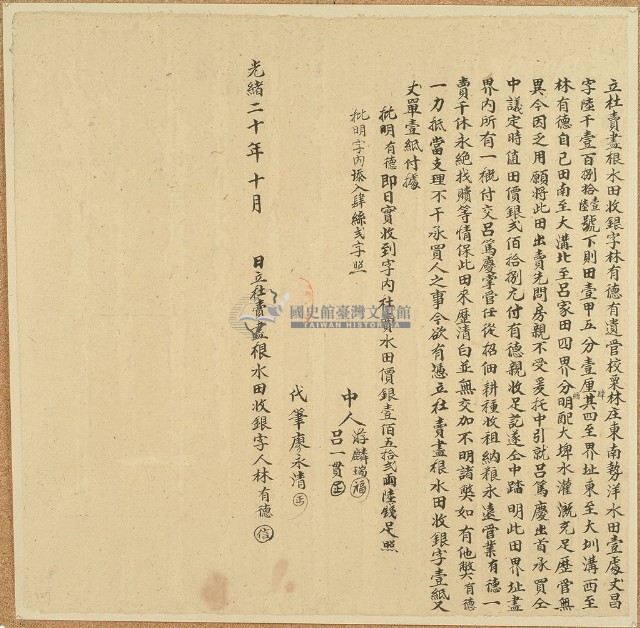 立杜賣盡根水田收銀字林有德有遺管校栗林庄東南勢洋水田壹處丈昌
字陸千壹百捌拾陸號下則田壹甲五分壹厘其四至界址東至大圳溝西至
林有德自己田南至大溝北至呂家田四界分明配大埤水灌溉充足歷管無
異今因乏用願將此田出賣先問房親不受爰托中引就呂篤慶出首承買仝
中議定時值田價銀貳佰拾捌元付有德親收足訖遂仝中踏明此田界址盡
界內所有一概付交呂篤慶掌管任從招佃耕種收租納粮永遠管業有德一
賣千休永絕找贖等情保此田來歷清白並無交加不明諸弊如有他弊有德
一力抵當支理不干承買人之事今欲有憑立杜賣盡根水田收銀字壹紙又
丈單壹紙付據
批明有德即日實收到字內杜賣水田價銀壹佰五拾弍兩陸錢足照
批明字內添入肆絲弍字照
中人 游麟瑞 福
呂一貫 正
代筆廖永清
光緒二十年十月 日立杜賣盡根水田收銀字人林有德 信
國史館臺灣文獻館
TAIWAN HISTORICA